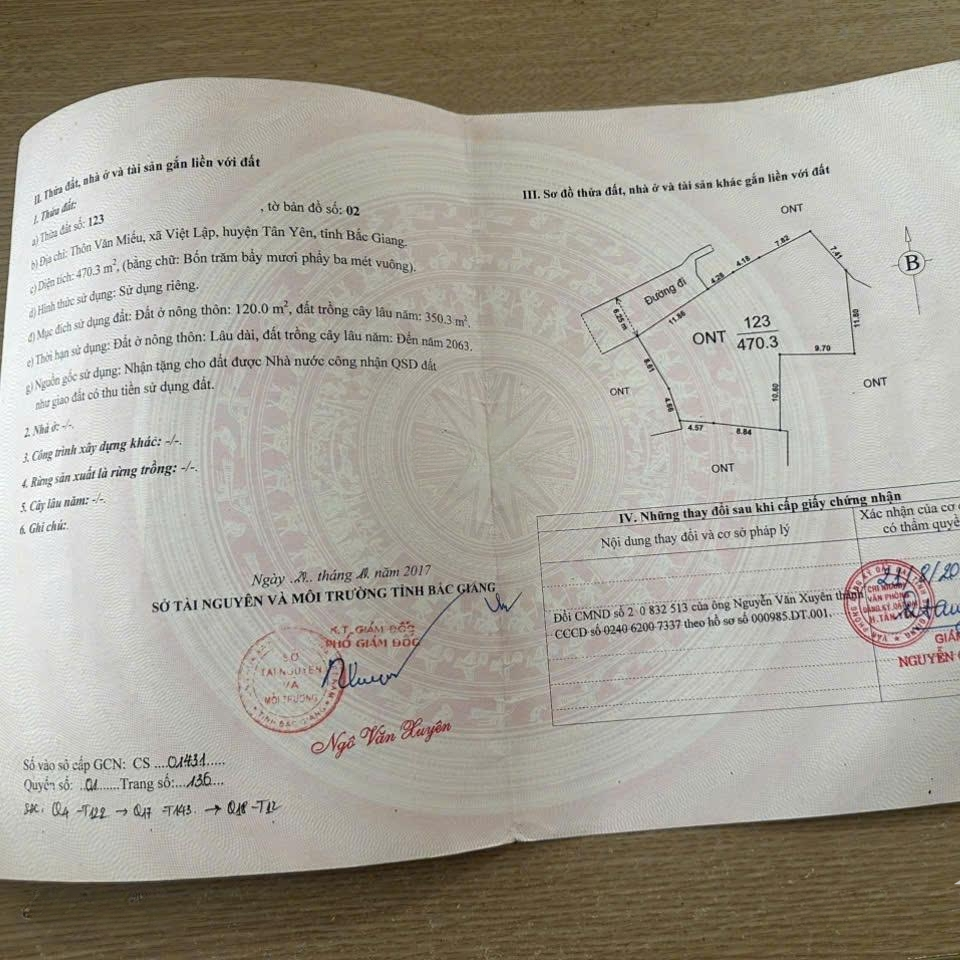 II. Thửa đất, nhà ở và tài sản gắn liền với đất
1. Thửa đất:
a) Thửa đất số: 123 , tờ bản đồ số: 02
b) Địa chỉ: Thôn Văn Miếu, xã Việt Lập, huyện Tân Yên, tỉnh Bắc Giang.
c) Diện tích: 470.3 m², (bằng chữ: Bốn trăm bẩy mươi phẩy ba mét vuông).
d) Hình thức sử dụng: Sử dụng riêng.
đ) Mục đích sử dụng đất: Đất ở nông thôn: 120.0 m², đất trồng cây lâu năm: 350.3 m².
e) Thời hạn sử dụng: Đất ở nông thôn: Lâu dài, đất trồng cây lâu năm: Đến năm 2063.
g) Nguồn gốc sử dụng: Nhận tặng cho đất được Nhà nước công nhận QSD đất
như giao đất có thu tiền sử dụng đất.
2. Nhà ở: -/-.
3. Công trình xây dựng khác: -/-.
4. Rừng sản xuất là rừng trồng: -/-.
5. Cây lâu năm: -/-.
6. Ghi chú:
Ngày tháng năm 2017
SỞ TÀI NGUYÊN VÀ MÔI TRƯỜNG TỈNH BẮC GIANG
K.T GIÁM ĐỐC
PHÓ GIÁM ĐỐC
SỞ
TÀI NGUYÊN
VÀ
MÔI TRƯỜNG
TỈNH BẮC GIANG
Ngô Văn Xuyên
Số vào sổ cấp GCN: CS ....01431.....
Quyển số: ..01......Trang số:....136....
Q4 -T122 → Q17 -T143. → Q18 -T12
III. Sơ đồ thửa đất, nhà ở và tài sản khác gắn liền với đất
ONT
7.82
7.41
4.18
4.28
B
Đường đi
6.25 m
11.86
11.80
ONT 123
470.3
9.70
8.61
ONT
ONT
4.66
10.60
4.57
8.84
ONT
IV. Những thay đổi sau khi cấp giấy chứng nhận
Nội dung thay đổi và cơ sở pháp lý
Xác nhận của cơ
có thẩm quyề
Đổi CMND số 2 0 832 513 của ông Nguyễn Văn Xuyên thành
CCCD số 0240 6200 7337 theo hồ sơ số 000985.DT.001.
CHI NHÁNH
VĂN PHÒNG
ĐĂNG KÝ ĐẤT ĐAI
H.TÂN YÊN
GIÁM
NGUYỄN